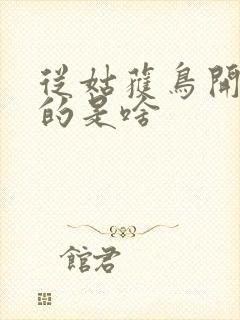 從姑獲鳥開
的是啥
館君